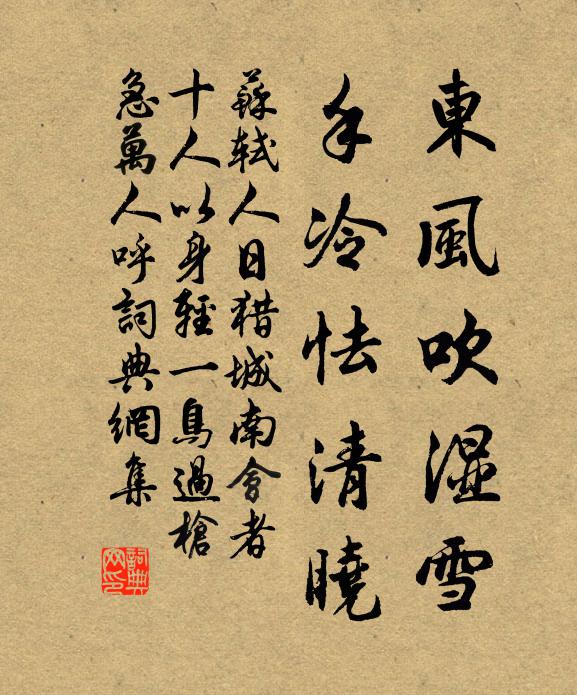 東風吹濕雪
手冷怯清曉
蘇軾人日猎城南會者
十人以身輕一鳥過槍
急萬人呼詞典網集
詞典网印